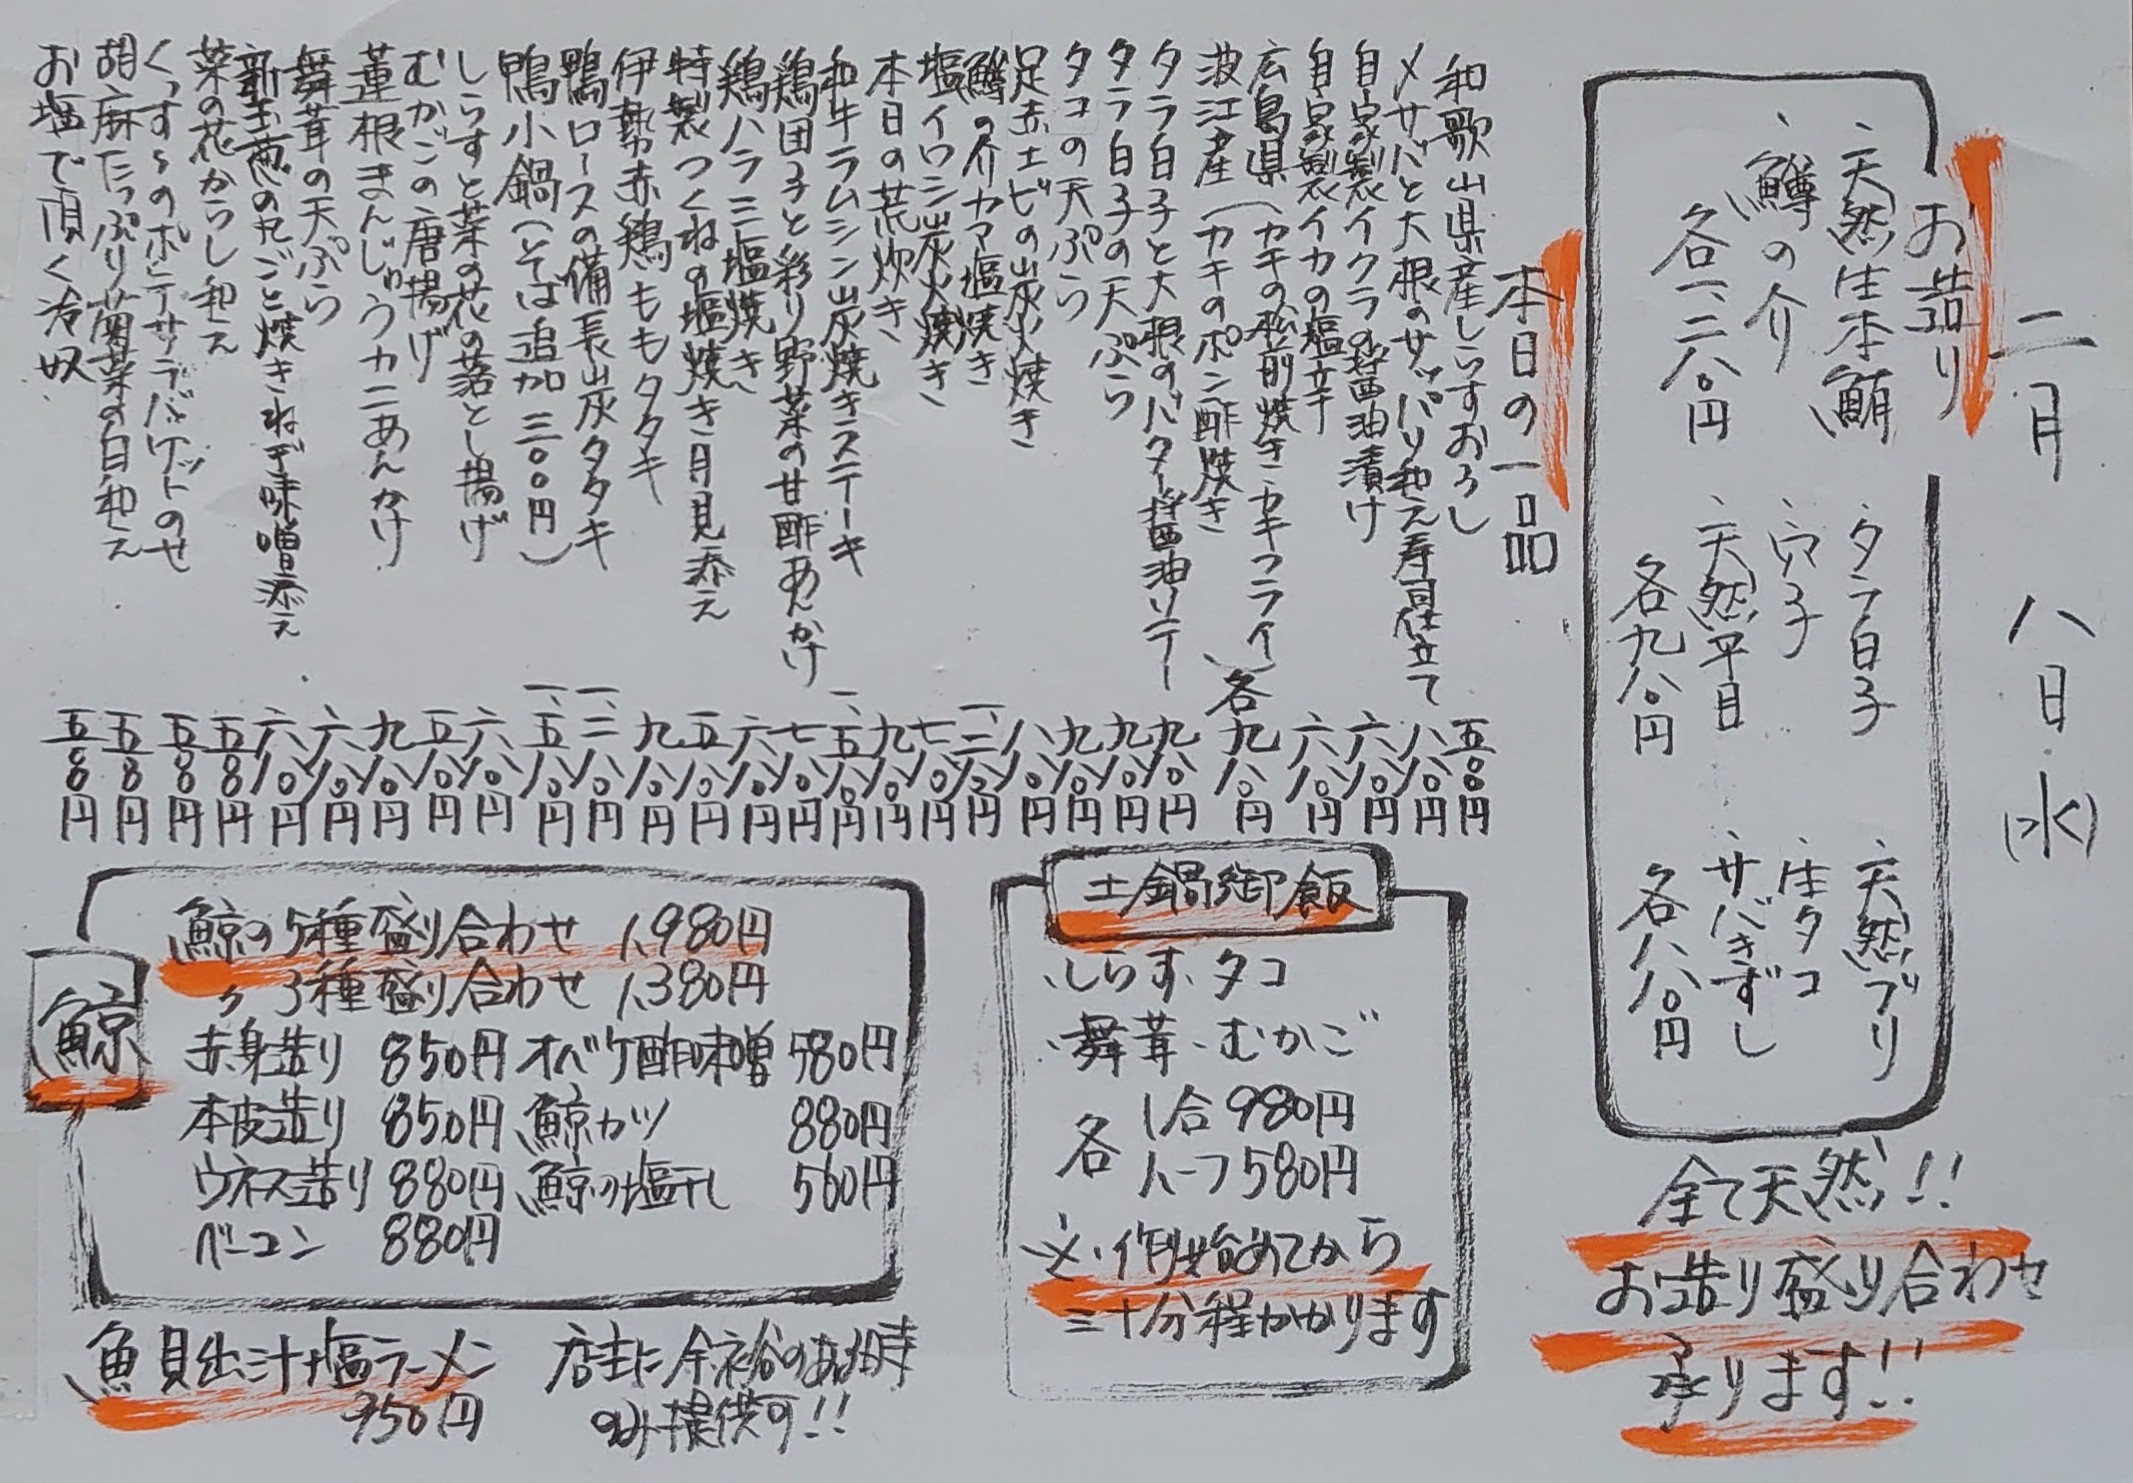 二月 八日(水)
お造り
、天然生本鮪
、鱒の介
各一、二八〇円
、タラ白子
、穴子
、天然平目
各九八〇円
、天然ブリ
、生タコ
、サバきずし
各八八〇円
全て天然!!
お造り盛り合わせ
承ります!!
本日の一品
和歌山県産しらすおろし 五八〇円
〆サバと大根のサッパリ和え寿司仕立て 八八〇円
自家製イクラの醤油漬け 六八〇円
自家製イカの塩辛 六八〇円
広島県(カキの松前焼き・カキフライ) 各九八〇円
波江産(カキのポン酢焼き
タラ白子と大根のバター醤油ソテー 九八〇円
タラ白子の天ぷら 九八〇円
タコの天ぷら 九八〇円
足赤エビの炭火焼き 八八〇円
鱒の介カマ塩焼き 一、二八〇円
塩イワシ炭火焼き 七八〇円
本日の荒炊き 九八〇円
和牛ラムシン炭焼きステーキ 一、五八〇円
鶏団子と彩り野菜の甘酢あんかけ 七八〇円
鶏ハラミ塩焼き 六八〇円
特製つくねの塩焼き月見添え 五八〇円
伊勢赤鶏ももタタキ 九八〇円
鴨ロースの備長炭タタキ 一、二八〇円
鴨小鍋(そば追加 三〇〇円) 一、五八〇円
しらすと菜の花の落とし揚げ 六八〇円
むかごの唐揚げ 五八〇円
蓮根まんじゅうカニあんかけ 九八〇円
舞茸の天ぷら 六八〇円
新玉葱の丸ごと焼きねぎ味噌添え 六八〇円
菜の花からし和え 五八〇円
くっすぅのポテサラバケットのせ 五八〇円
胡麻たっぷり菊菜の白和え 五八〇円
お塩で頂く冷奴 五八〇円
土鍋御飯
、しらす、タコ
、舞茸、むかご
各 1合 980円
ハーフ 580円
※、作り始めてから
三十分程かかります
鯨
鯨の5種盛り合わせ 1,980円
〃 3種盛り合わせ 1,380円
赤身造り 850円 オバケ酢味噌 580円
本皮造り 850円 鯨カツ 880円
ウネス造り 880円 鯨の塩干し 560円
ベーコン 880円
魚貝出汁塩ラーメン
950円
店主に余裕のある時
のみ提供可!!